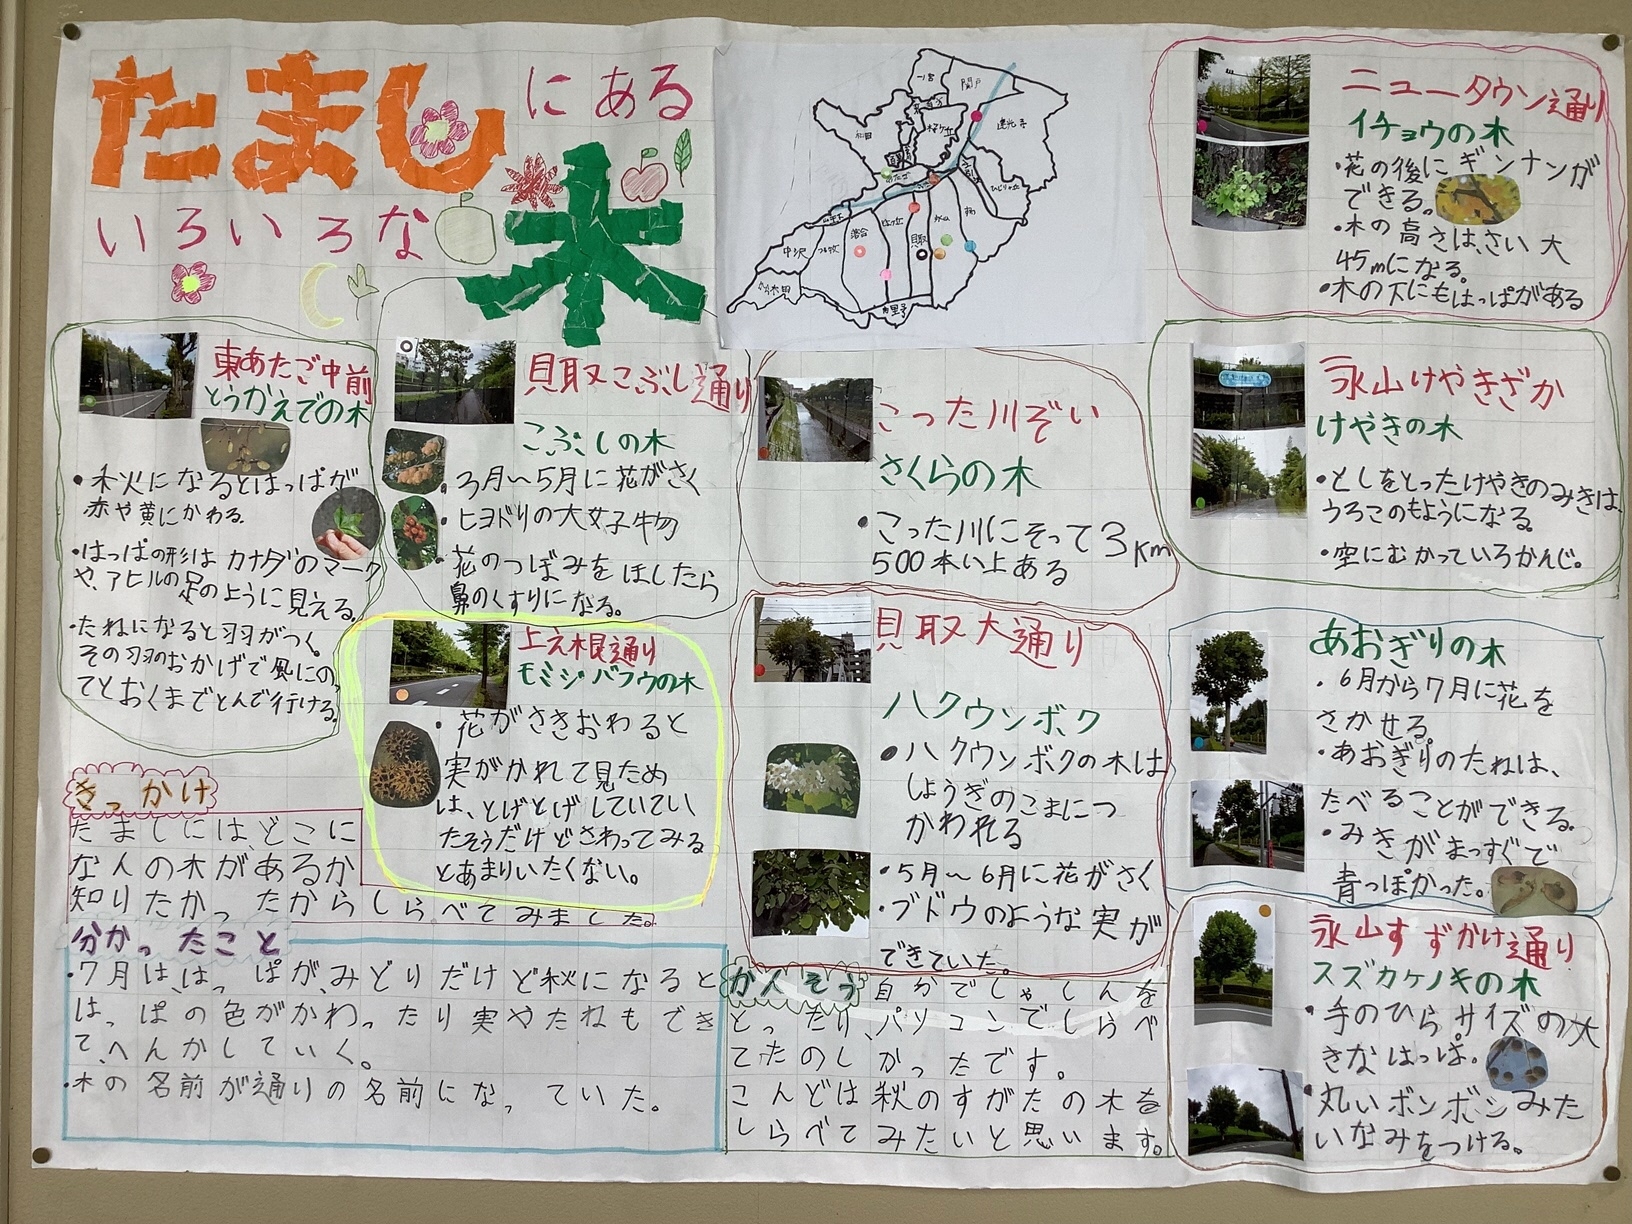 たましにある
いろいろな木
一ノ宮
関戸
連光寺
和田
桜ヶ丘
ひじりヶ丘
中沢
山王下
落合
貝取
永山
諏訪
ニュータウン通り
イチョウの木
・花の後にギンナンが
できる。
・木の高さは、さい大
45mになる。
・木の下にもはっぱがある
東あたご中前
とうかえでの木
・秋になるとはっぱが
赤や黄にかわる。
・はっぱの形はカナダのマーク
や、アヒルの足のように見える。
・たねになると羽がつく。
その羽のおかげで風にの
てとおくまでとんで行ける。
貝取こぶし通り
こぶしの木
・3月〜5月に花がさく
・ヒヨドリの大好物
・花のつぼみをほしたら
鼻のくすりになる。
こった川ぞい
さくらの木
・こった川にそって3km
500本い上ある
永山けやきざか
けやきの木
・としをとったけやきのみきは、
うろこのもようになる。
・空にむかっているかんじ。
上之根通り
モミジバフウの木
・花がさきおわると
実がかれて見ため
は、とげとげしていてい
たそうだけどさわってみる
とあまりいたくない。
貝取大通り
ハクウンボク
・ハクウンボクの木は
しょうぎのこまにつ
かわれる
・5月〜6月に花がさく
・ブドウのような実が
できていた。
あおぎりの木
・6月から7月に花を
さかせる。
・あおぎりのたねは、
たべることができる。
・みきがまっすぐで
青っぽかった。
永山すずかけ通り
スズカケノキの木
・手のひらサイズの大
きなはっぱ。
・丸いボンボンみた
いなみをつける。
きっかけ
たましには、どこに
な人の木があるか
知りたかったからしらべてみました。
分かったこと
・7月は、はっぱが、みどりだけど秋になると
はっぱの色がかわったり実やたねもでき
て、へんかしていく。
・木の名前が通りの名前になっていた。
かんそう
自分でしゃしんを
とったり、パソコンでしらべ
てたのしかったです。
こんどは秋のすがたの木を
しらべてみたいと思います。